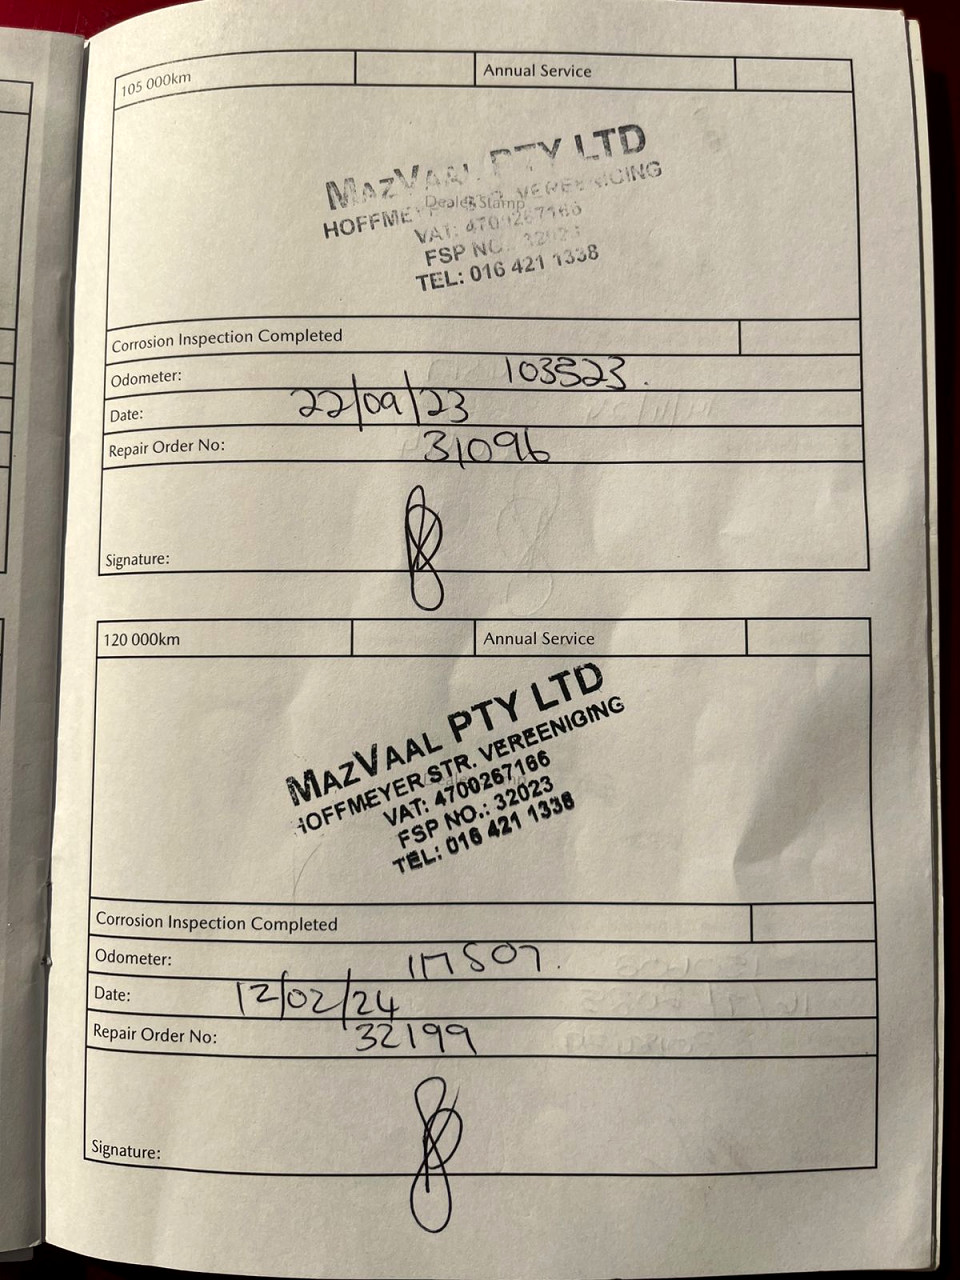 105 000km Annual Service
MAZVAAL PTY LTD
Dealer Stamp
VEREENIGING
VAT: 4700267166
FSP NO.: 32023
TEL: 016 421 1338
Corrosion Inspection Completed
Odometer: 103523.
Date: 22/09/23
Repair Order No: 31096
Signature:
120 000km Annual Service
MAZVAAL PTY LTD
HOFFMEYER STR. VEREENIGING
VAT: 4700267166
FSP NO.: 32023
TEL: 016 421 1338
Corrosion Inspection Completed
Odometer: 117507.
Date: 12/02/24
Repair Order No: 32199
Signature: